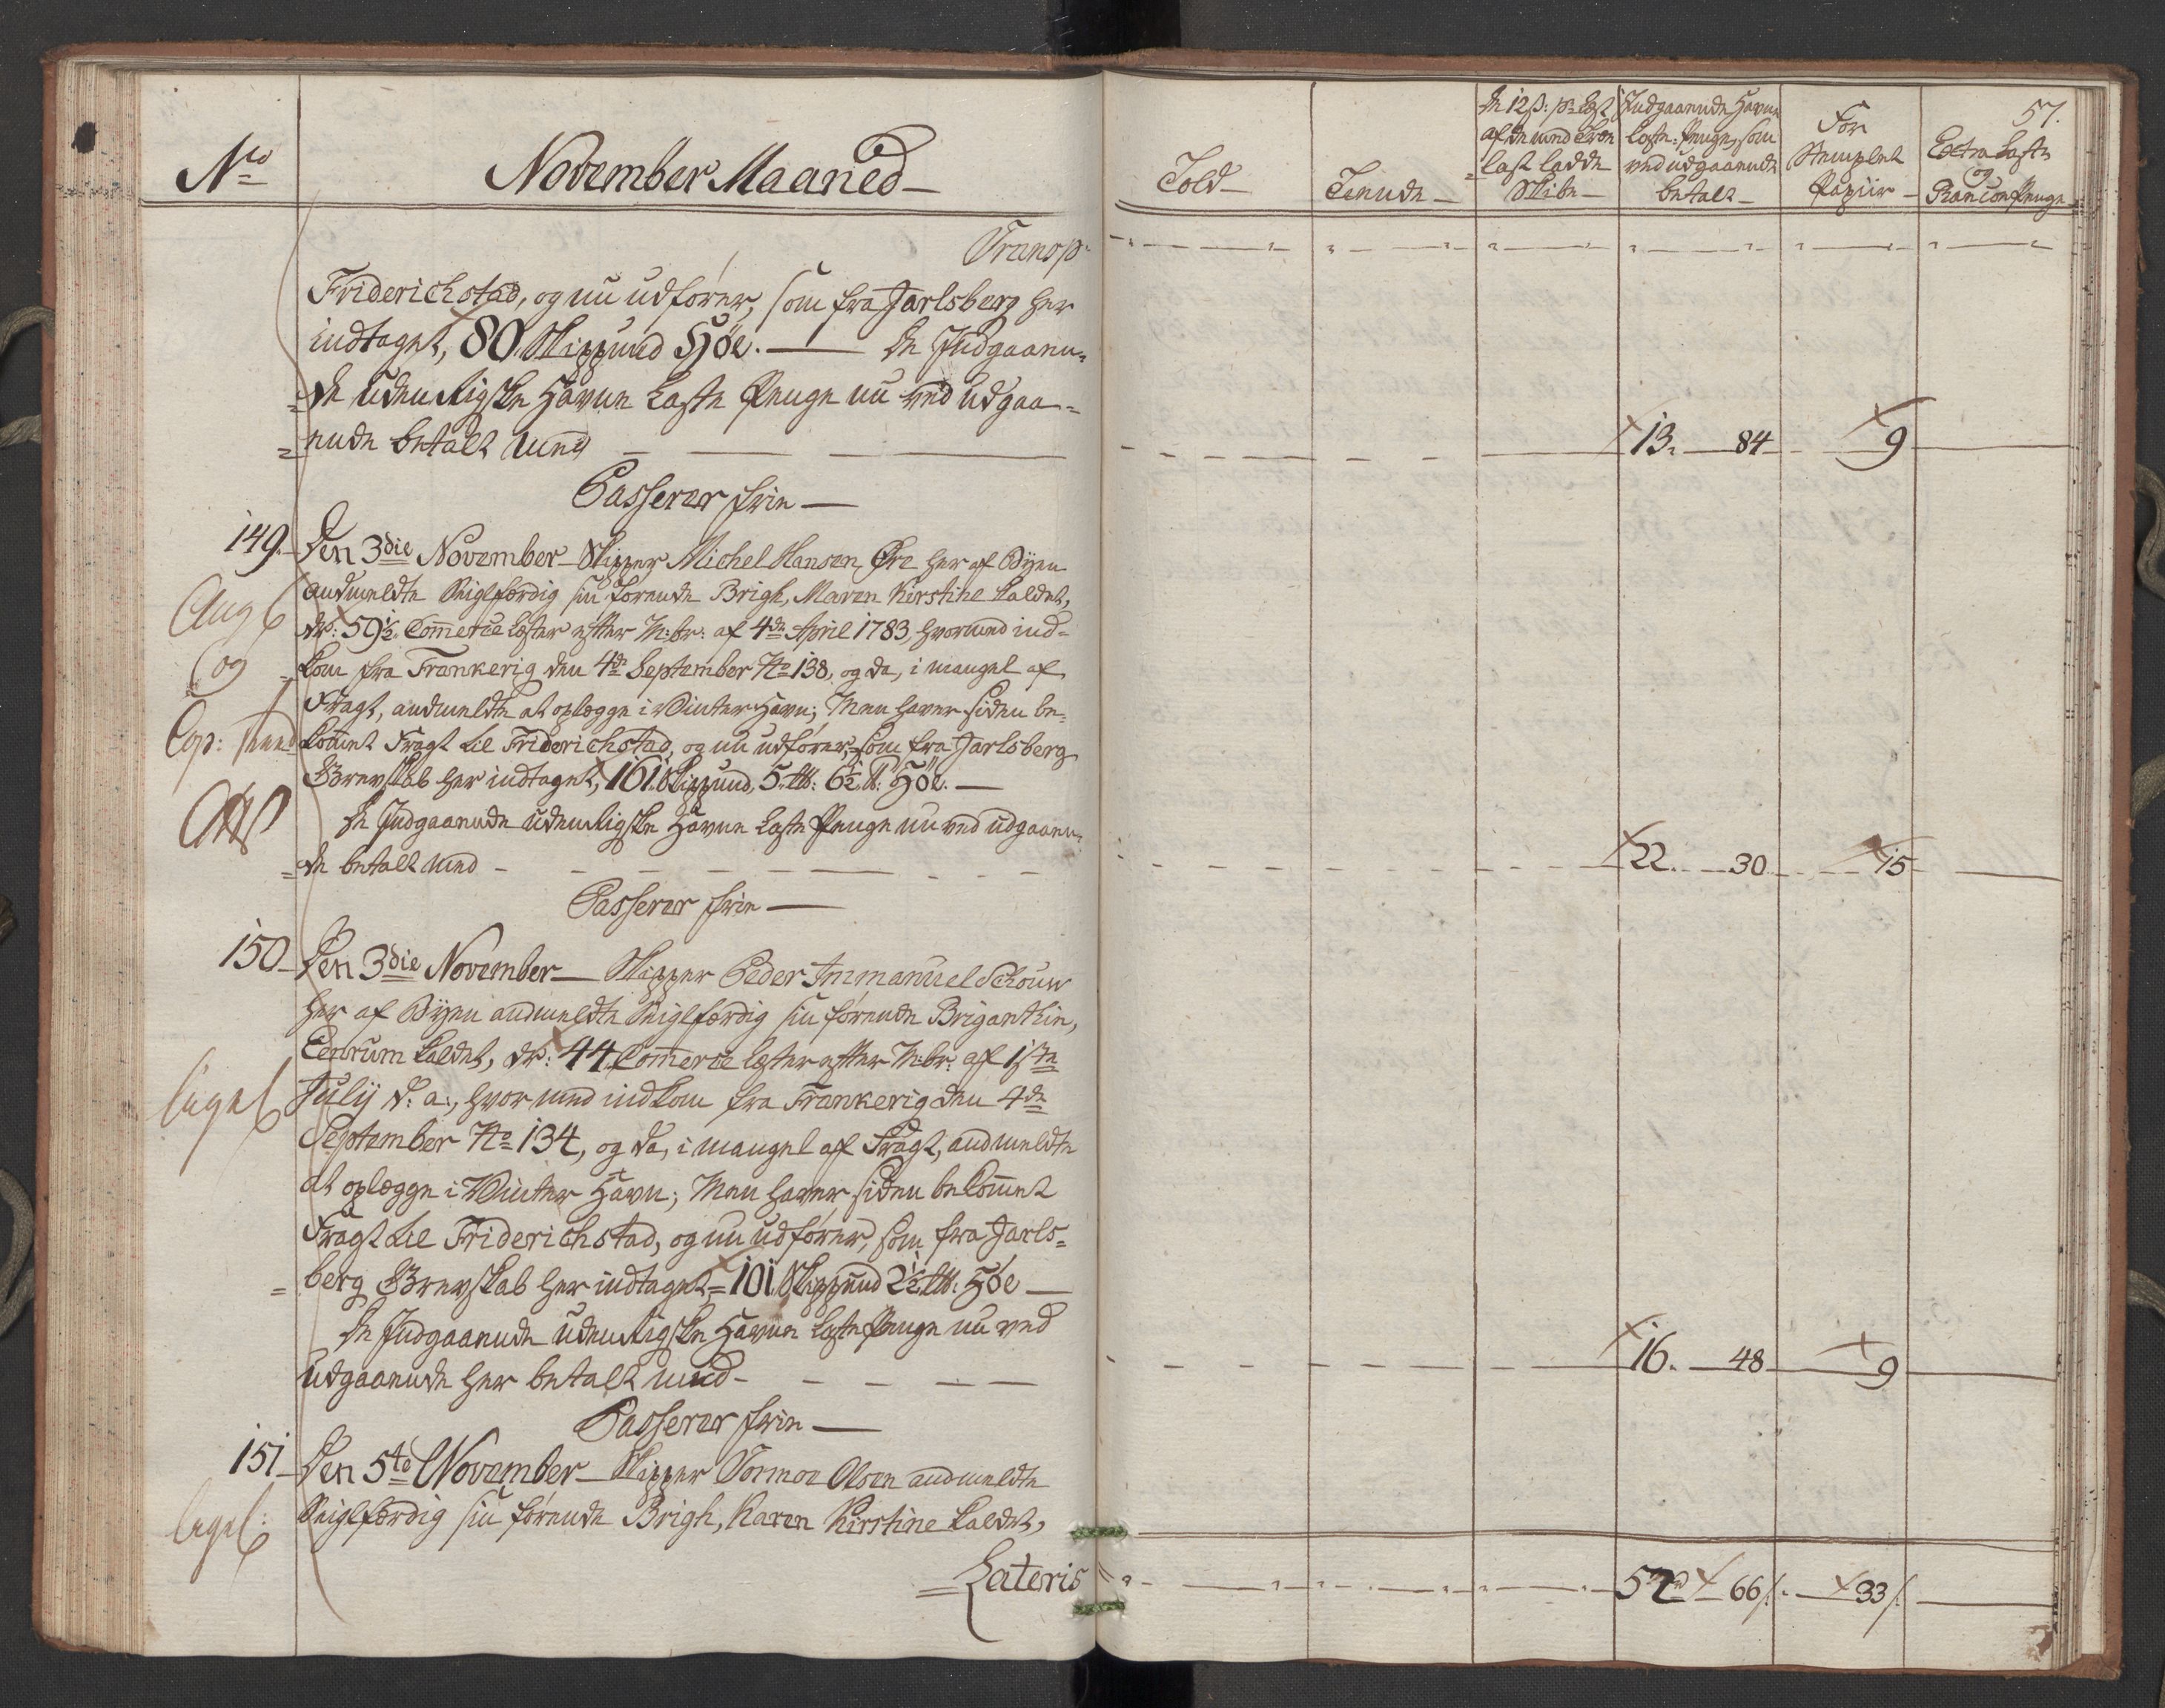 No
November Maaned
Transp.
Friderichstad, og nu udfører, som fra Jarlsberg her
indtaget, 80 Skippund Höe. De Indgaaen-
de udenrigske Havne Laste Penge nu ved udgaa-
ende betalt med
Passerer frie
149. Den 3die November Skipper Michel Hansen Øre her af Byen
andmeldte Seiglfærdig sin førende Brigh, Maren Kirstine kaldet,
dr: 59½ Commerce Læster efter M:br: af 4de April 1783, hvormed ind-
kom fra Frankerig den 4de September No 138, og da, i mangel af
Fragt, andmeldte at oplægge i Vinter Havn; Men haver siden be-
kommet Fragt til Friderichstad, og nu udfører, som fra Jarlsberg
Grevskab her indtaget, 161 Skippund, 5 L℔: 6½ ℔: Höe.
De Indgaaende udenrigske Havne Laste Penge nu ved udgaaen-
de betalt med
Passerer frie
150 Den 3die November Skipper Peder Immanuel Schouw
her af Byen andmeldte Seiglfærdig sin førende Briganthin,
Centrum kaldet, dr: 44 Commerce Læster efter M:br: af 1ste
July d: a:, hvormed indkom fra Frankerig den 4de
September No 134, og da, i mangel af Fragt, andmeldte
at oplægge i Vinter Havn; Men haver siden bekommet
Fragt til Friderichstad, og nu udfører, som fra Jarls-
berg Grevskab her indtaget, 101 Skippund 2½ L℔: Höe
De Indgaaende udenrigske Havne Laste Penge nu ved
udgaaende her betalt med
Passerer frie
151 Den 5te November Skipper Tormoe Olsen andmeldte
Seiglfærdig sin førende Brigh, Karen Kirstine kaldet,
Lateris
og
ligel
ligel:
57.
Told
Tiende
De 12 ß: pr Læst
af de med Træ
last ladde
Skibe
Indgaaende Havne
Laste-Penge, som
ved udgaaende
betalt
For
Stemplet
Papiir
Extra Laste
og
Rancon Penge
13. 84 9
22. 30 15
16. 48 9
52 rd 66 ß. 33 ß.